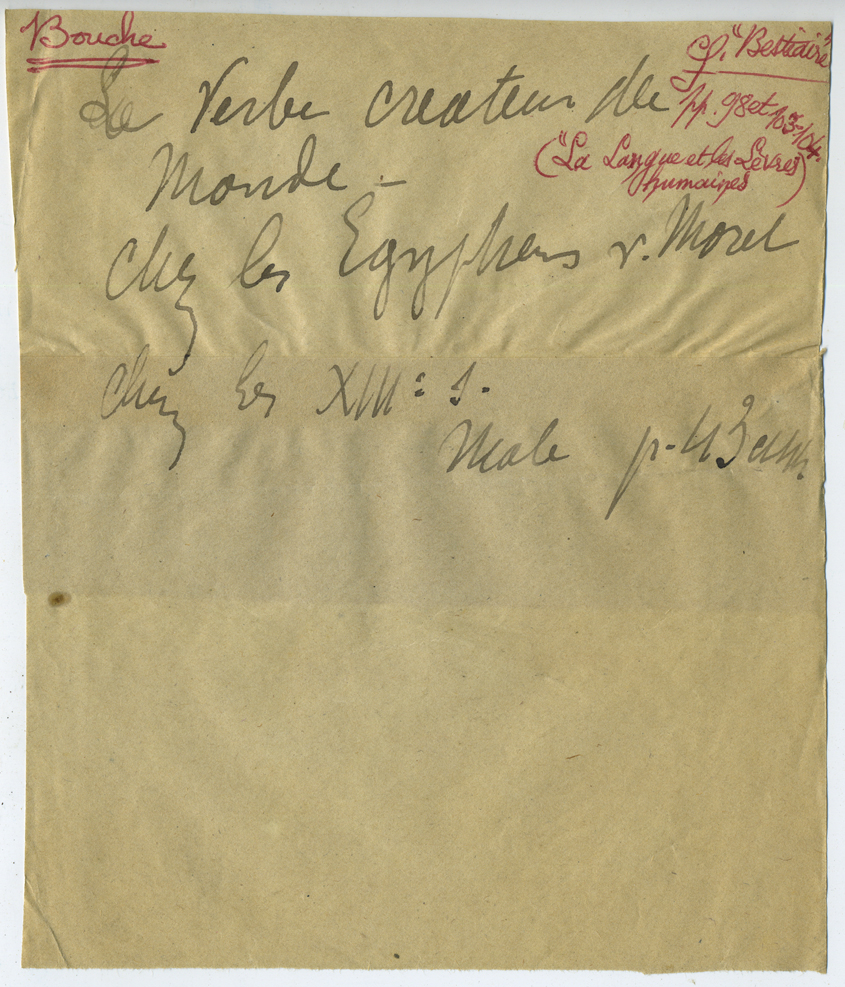 Bouche
Cf. "Bestiaire"
pp. 98 et 103-104.
("La Langue et les Lèvres
humaines)
Le Verbe createur de
Monde -
chez les Egyptiens v. Moret
chez les XIIIe s.
Male p. 43